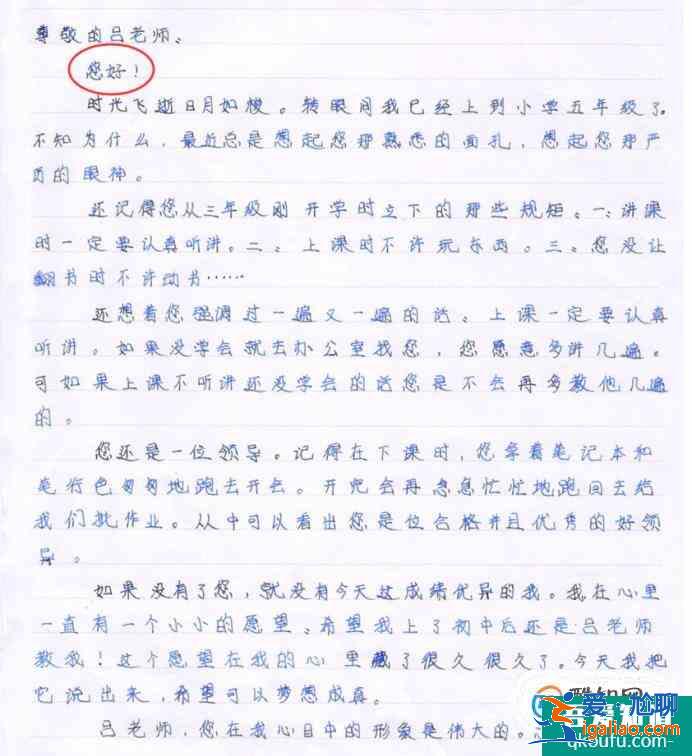 尊敬的吕老师、
您好！
时光飞逝日月如梭。转眼间我已经上到小学五年级了。
不知为什么，最近总是想起您那熟悉的面孔，想起您那严
厉的眼神。
还记得您从三年级刚开学时立下的那些规矩。一、讲课
时一定要认真听讲。二、上课时不许玩东西。三、您没让
翻书时不许动书……
还想着您强调过一遍又一遍的话。上课一定要认真
听讲。如果没学会就去办公室找您，您愿意多讲几遍。
可如果上课不听讲还没学会的话您是不会再多教他几遍
的。
您还是一位领导。记得在下课时，您拿着笔记本和
笔行色匆匆地跑去开会。开完会再急急忙忙地跑回去给
我们批作业。从中可以看出您是位合格并且优秀的好领
导。
如果没有了您，就没有今天这成绩优异的我。我在心里
一直有一个小小的愿望、希望我上了初中后还是吕老师
教我！这个愿望在我的心里藏了很久很久了。今天我把
它说出来，希望可以梦想成真。
吕老师，您在我心目中的形象是伟大的。
爱尬聊
igaliao.com
qk5ufu.com